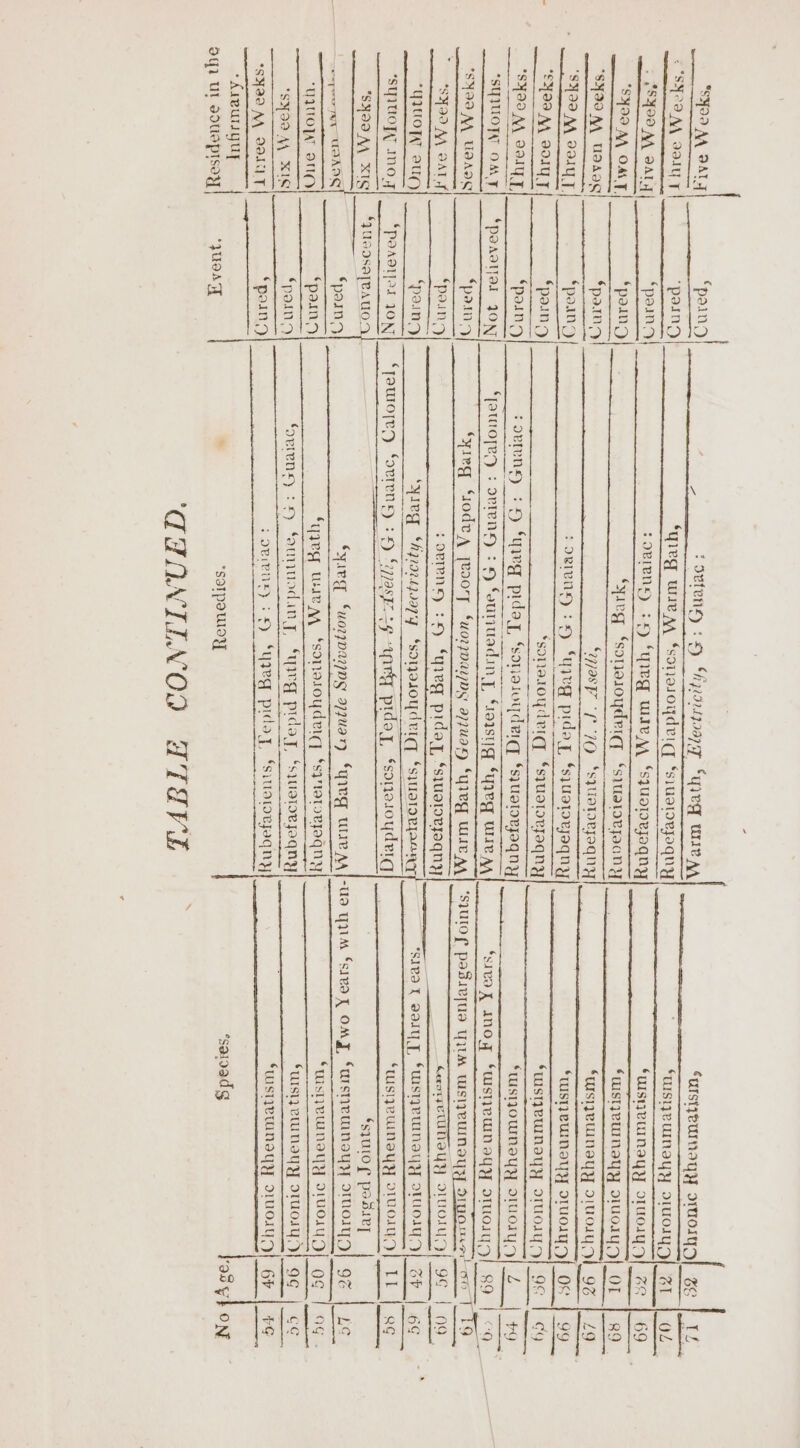 TABLE CONTINUED.
No Age Species. Remedies. Event. Residence in the Infirmary.
54 49 Chronic Rheumatism, Rubefacients, Tepid Bath, G: Guaiac: Cured, Three Weeks.
55 56 Chronic Rheumatism, Rubefacients, Tepid Bath, Turpentine, G: Guaiac, Cured, Six Weeks.
56 50 Chronic Rheumatism, Rubefacients, Diaphoretics, Warm Bath, Cured, One Month.
57 26 Chronic Rheumatism, Two Years, with en- Warm Bath, Gentle Salivation, Bark, Cured, Seven
larged Joints, Convalescent, Six Weeks.
58 11 Chronic Rheumatism, Diaphoretics, Tepid Bath, G: Guaiac, Calomel, Not relieved, Four Months.
59 42 Chronic Rheumatism, Three Years. Diaphoretics, Electricity, Bark, Cured, One Month.
60 56 Chronic Rheumatism, Rubefacients, Tepid Bath, G: Guaiac: Cured, Five Weeks.
61 Chronic Rheumatism with enlarged Joints. Warm Bath, Gentle Salivation, Local Vapor, Bark, Cured, Seven Weeks.
68 Chronic Rheumatism, Four Years, Warm Bath, Blister, Turpentine, G: Guaiac: Calomel, Not relieved, Two Months.
64 7 Chronic Rheumotism, Rubefacients, Diaphoretics, Tepid Bath, G: Guaiac: Cured, Three Weeks.
65 56 Chronic Rheumatism, Rubefacients, Diaphoretics, Cured, Three Weeks.
66 50 Chronic Rheumatism, Rubefacients, Tepid Bath, G: Guaiac: Cured, Three Weeks.
67 26 Chronic Rheumatism, Rubefacients, Ol. J. Asell; Cured, Seven Weeks.
68 10 Chronic Rheumatism, Rubefacients, Diaphoretics, Bark, Cured, Two Weeks.
69 52 Chronic Rheumatism, Rubefacients, Warm Bath, G: Guaiac: Cured, Five Weeks.
70 12 Chronic Rheumatism, Rubefacients, Diaphoretics, Warm Bath, Cured. Three Weeks.
71 32 Chronic Rheumatism, Warm Bath, Electricity, G: Guaiac: Cured, Five Weeks.